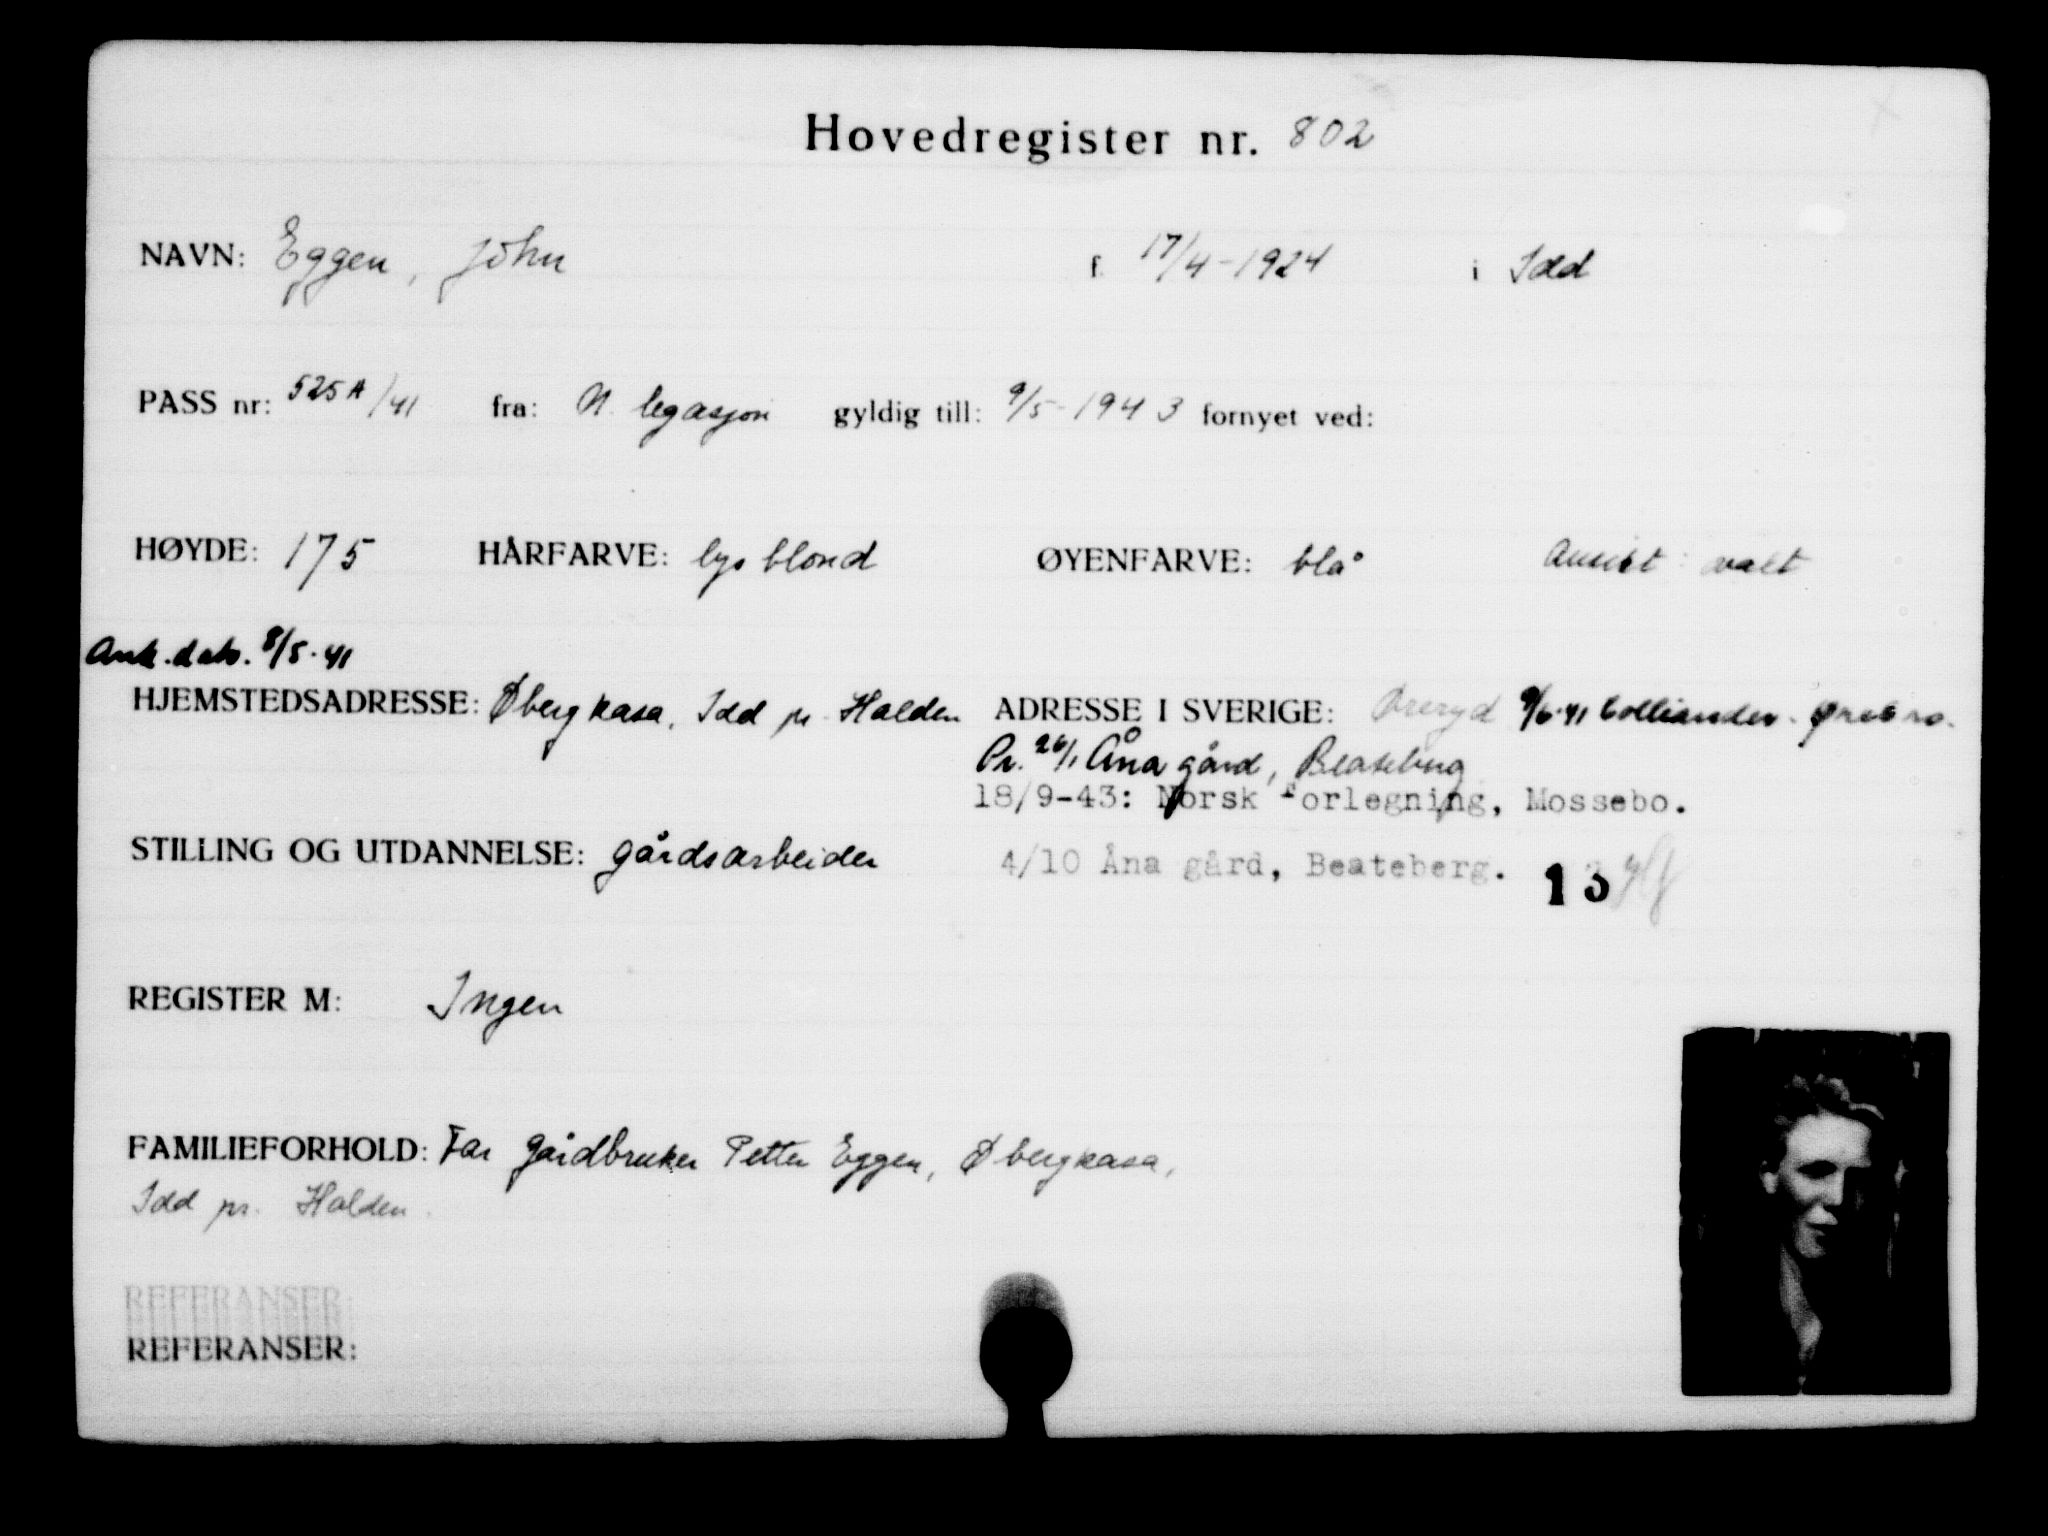 Hovedregister nr. 802
NAVN: Eggen, John f. 17/4-1924 i Idd
PASS nr: 525A/41 fra: N. legasjon gyldig till: 9/5-1943 fornyet ved:
HØYDE: 175 HÅRFARVE: lys blond ØYENFARVE: blå Ansikt: ovalt
Ank. dato. 8/5-41
HJEMSTEDSADRESSE: Øbergkasa, Idd pr. Halden ADRESSE I SVERIGE: Öreryd 9/6-41 Colliander. Ørebro.
Pr. 26/1 Åna gård, Beateberg
18/9-43: Norsk Forlegning, Mossebo.
STILLING OG UTDANNELSE: gårdsarbeider 4/10 Åna gård, Beateberg. 13
REGISTER M: Ingen
FAMILIEFORHOLD: Far gårdbruker Petter Eggen, Øbergkasa,
Idd pr. Halden.
REFERANSER:
REFERANSER: